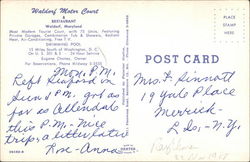 Waldorf Motor Court
RESTAURANT
Waldorf, Maryland
Most Modern Tourist Court, with 75 Units, Featuring
Private Garages, Combination Tub & Showers, Radiant
Heat, Air-Conditioning, Free T V
SWIMMING POOL
15 Miles South of Washington, D. C.
On U. S. 301 & 5 - 24 Hour Service
Eugene Chaney, Owner
For Reservations, Phone Midway
PLACE
STAMP
HERE
POST CARD
Mon. P.M.
Left
Sun. P.M. got as
far as Allendale
this P.M. - Nice
trip, a little late
Rose-Anna
Mrs. F. Sinnott
19 Place
Merrick -
L. Is. - N.Y.